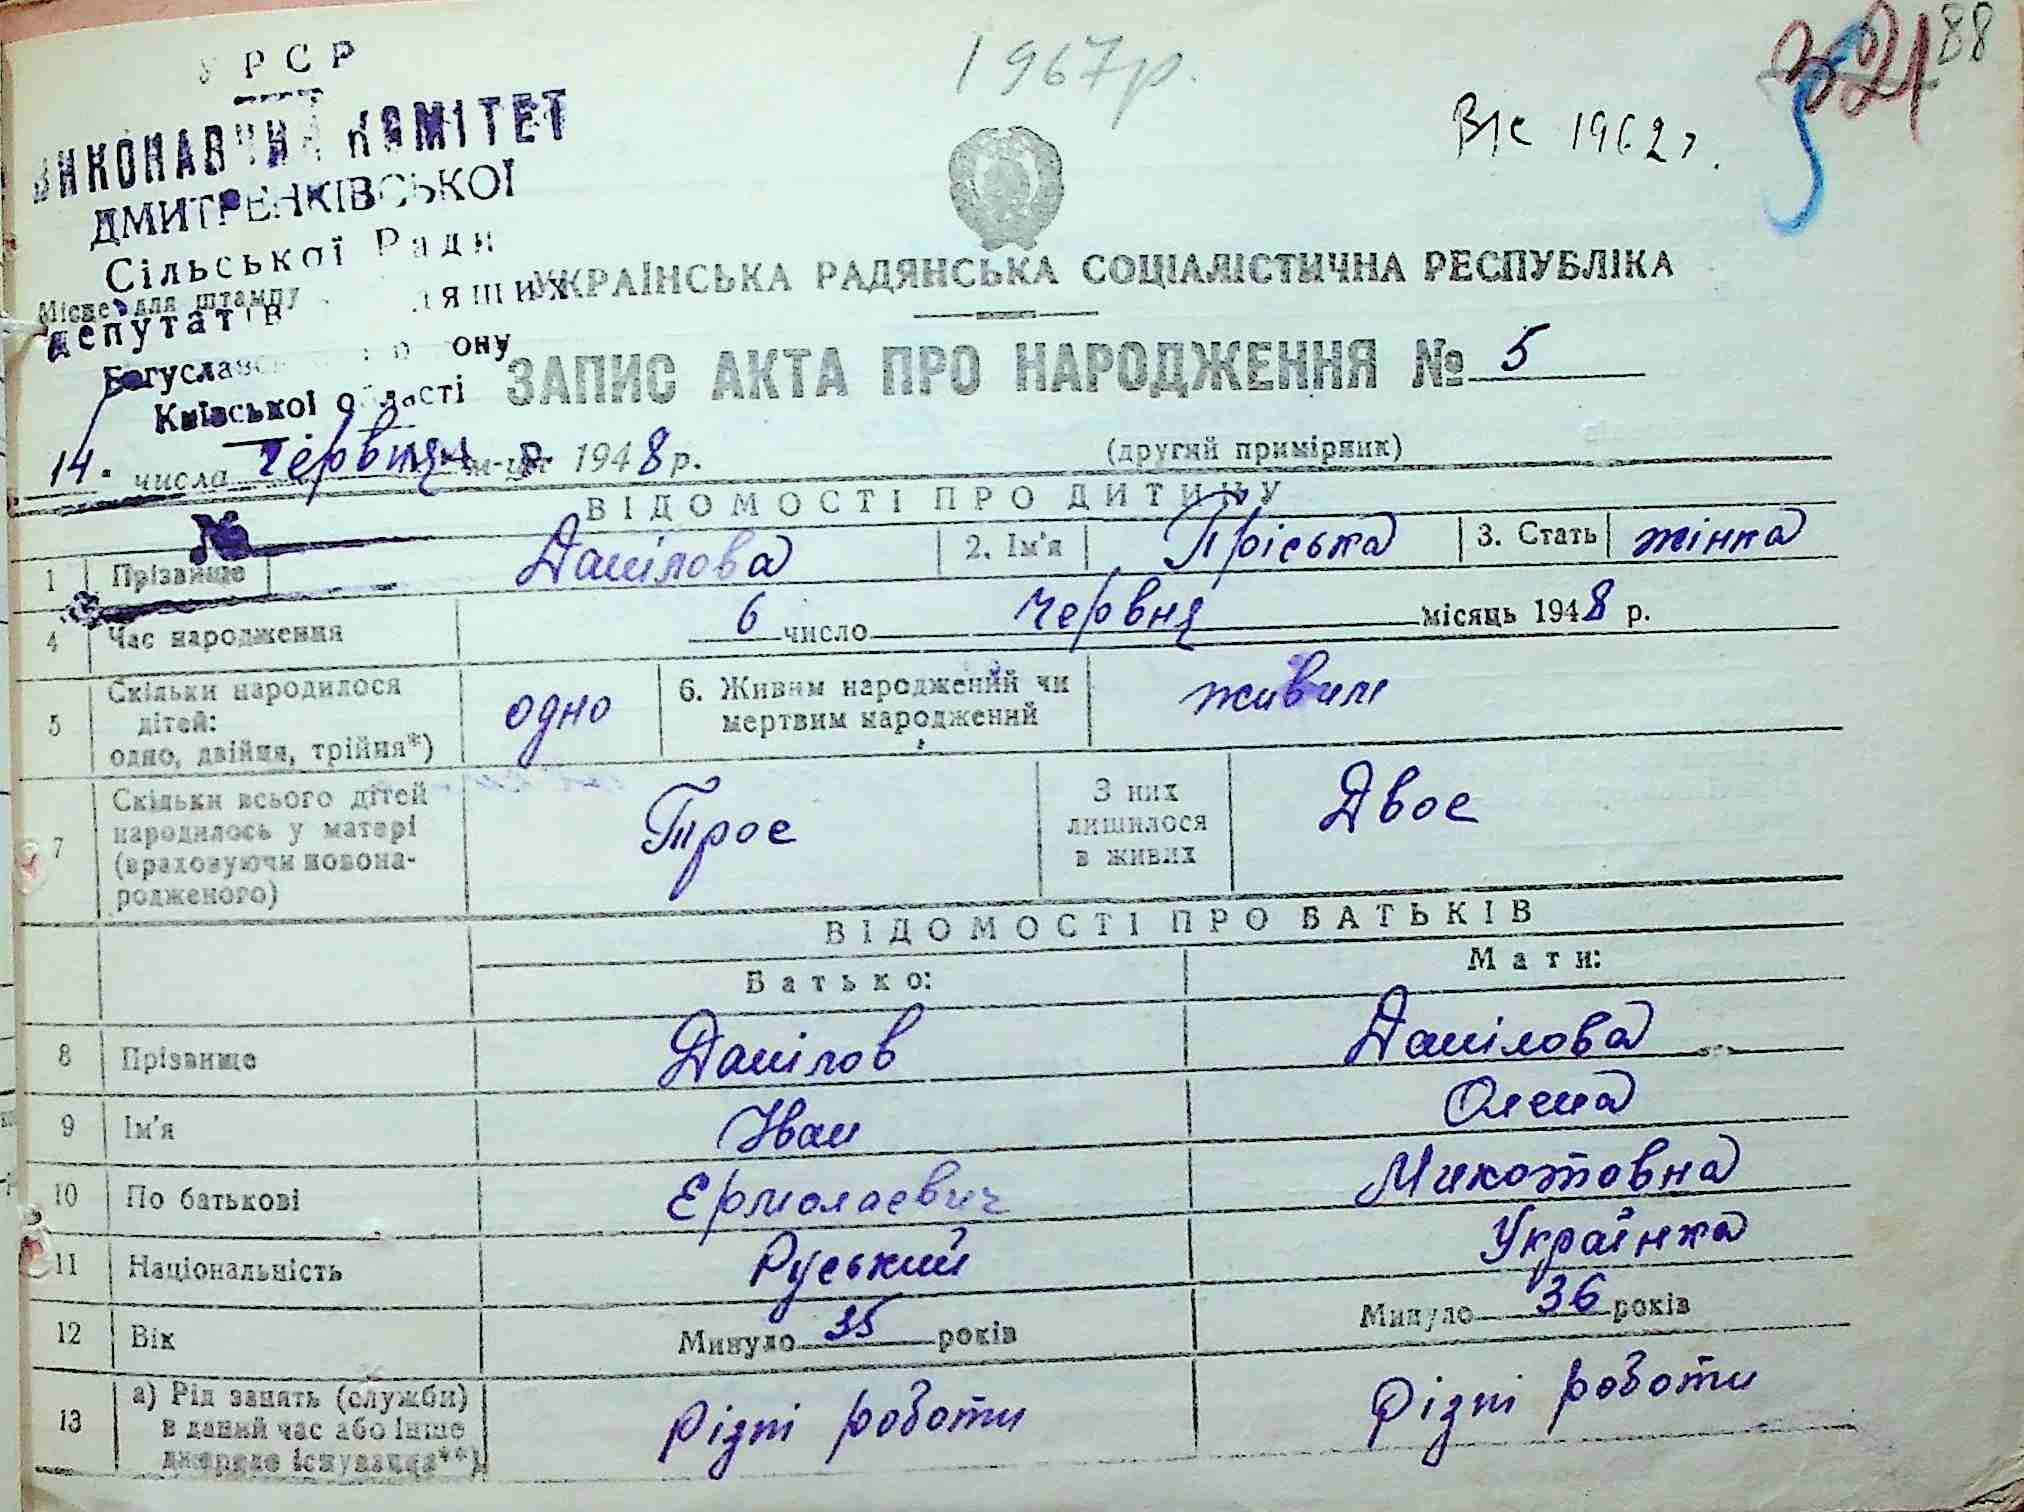 УРСР
ВИКОНАВЧИЙ КОМІТЕТ
ДМИТРЕНКІВСЬКОЇ
Сільської Ради
Місце для штампу
депутатів
Київської області
1967 р.
В/с 1962 г.
88
УКРАЇНСЬКА РАДЯНСЬКА СОЦІАЛІСТИЧНА РЕСПУБЛІКА
ЗАПИС АКТА ПРО НАРОДЖЕННЯ № 5
(другий примірник)
14 числа червня м-ця 1948 р.
ВІДОМОСТІ ПРО ДИТИНУ
1 Прізвище Данілова 2. Ім'я Пріська 3. Стать жінка
4 Час народження 6 число червня місяць 1948 р.
5 Скільки народилося дітей: одно, двійня, трійня*) одно 6. Живим народжений чи мертвим народжений живим
7 Скільки всього дітей народилось у матері (враховуючи новонародженого) Троє З них лишилося в живих Двоє
ВІДОМОСТІ ПРО БАТЬКІВ
Батько: Мати:
8 Прізвище Данілов Данілова
9 Ім'я Іван Олена
10 По батькові Ермолаєвич
11 Національність Руський Українка
12 Вік Минуло 35 років Минуло 36 років
13 а) Рід занять (служби) в даний час або інше джерело існування**) Різні роботи Різні роботи